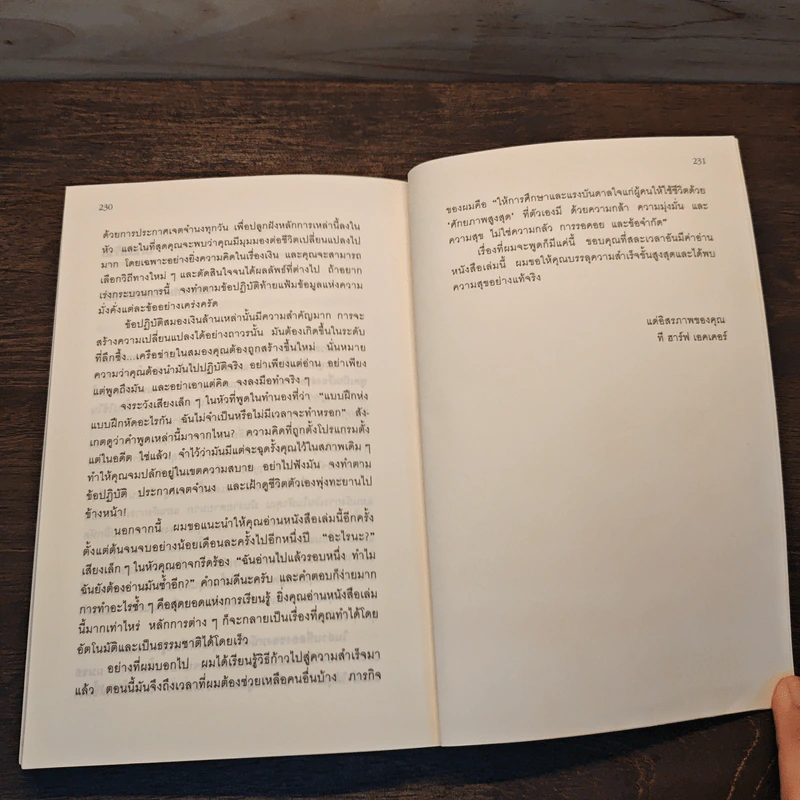 230
ด้วยการประกาศเจตจำนงทุกวัน เพื่อปลูกฝังหลักการเหล่านี้ลงใน
หัว และในที่สุดคุณจะพบว่าคุณมีมุมมองต่อชีวิตเปลี่ยนแปลงไป
มาก โดยเฉพาะอย่างยิ่งความคิดในเรื่องเงิน และคุณจะสามารถ
เลือกวิถีทางใหม่ ๆ และตัดสินใจจนได้ผลลัพธ์ที่ต่างไป ถ้าอยาก
เร่งกระบวนการนี้ จงทำตามข้อปฏิบัติท้ายแฟ้มข้อมูลแห่งความ
มั่งคั่งแต่ละข้ออย่างเคร่งครัด
ข้อปฏิบัติสมองเงินล้านเหล่านั้นมีความสำคัญมาก การจะ
สร้างความเปลี่ยนแปลงได้อย่างถาวรนั้น มันต้องเกิดขึ้นในระดับ
ที่ลึกซึ้ง...เครือข่ายในสมองคุณต้องถูกสร้างขึ้นใหม่ นั่นหมาย
ความว่าคุณต้องนำมันไปปฏิบัติจริง อย่าเพียงแต่อ่าน อย่าเพียง
แต่พูดถึงมัน และอย่าเอาแต่คิด จงลงมือทำจริง ๆ
จงระวังเสียงเล็ก ๆ ในหัวที่พูดในทำนองที่ว่า “แบบฝึกห่ง
แบบฝึกหัดอะไรกัน ฉันไม่จำเป็นหรือไม่มีเวลาจะทำหรอก” สัง-
เกตดูว่าคำพูดเหล่านี้มาจากไหน? ความคิดที่ถูกตั้งโปรแกรมตั้ง
แต่ในอดีต ใช่แล้ว! จำไว้ว่ามันมีแต่จะฉุดรั้งคุณไว้ในสภาพเดิม ๆ
ทำให้คุณจมปลักอยู่ในเขตความสบาย อย่าไปฟังมัน จงทำตาม
ข้อปฏิบัติ ประกาศเจตจำนง และเฝ้าดูชีวิตตัวเองพุ่งทะยานไป
ข้างหน้า!
นอกจากนี้ ผมขอแนะนำให้คุณอ่านหนังสือเล่มนี้อีกครั้ง
ตั้งแต่ต้นจนจบอย่างน้อยเดือนละครั้งไปอีกหนึ่งปี “อะไรนะ?”
เสียงเล็ก ๆ ในหัวคุณอาจกรีดร้อง “ฉันอ่านไปแล้วรอบหนึ่ง ทำไม
ฉันยังต้องอ่านมันซ้ำอีก?” คำถามดีนะครับ และคำตอบก็ง่ายมาก
การทำอะไรซ้ำ ๆ คือสุดยอดแห่งการเรียนรู้ ยิ่งคุณอ่านหนังสือเล่ม
นี้มากเท่าไหร่ หลักการต่าง ๆ ก็จะกลายเป็นเรื่องที่คุณทำได้โดย
อัตโนมัติและเป็นธรรมชาติได้โดยเร็ว
อย่างที่ผมบอกไป ผมได้เรียนรู้วิธีก้าวไปสู่ความสำเร็จมา
แล้ว ตอนนี้มันจึงถึงเวลาที่ผมต้องช่วยเหลือคนอื่นบ้าง ภารกิจ
231
ของผมคือ “ให้การศึกษาและแรงบันดาลใจแก่ผู้คนให้ใช้ชีวิตด้วย
‘ศักยภาพสูงสุด’ ที่ตัวเองมี ด้วยความกล้า ความมุ่งมั่น และ
ความสุข ไม่ใช่ความกลัว การรอคอย และข้อจำกัด”
เรื่องที่ผมจะพูดก็มีแค่นี้ ขอบคุณที่สละเวลาอันมีค่าอ่าน
หนังสือเล่มนี้ ผมขอให้คุณบรรลุความสำเร็จขั้นสูงสุดและได้พบ
ความสุขอย่างแท้จริง
แด่อิสรภาพของคุณ
ที ฮาร์ฟ เอคเคอร์